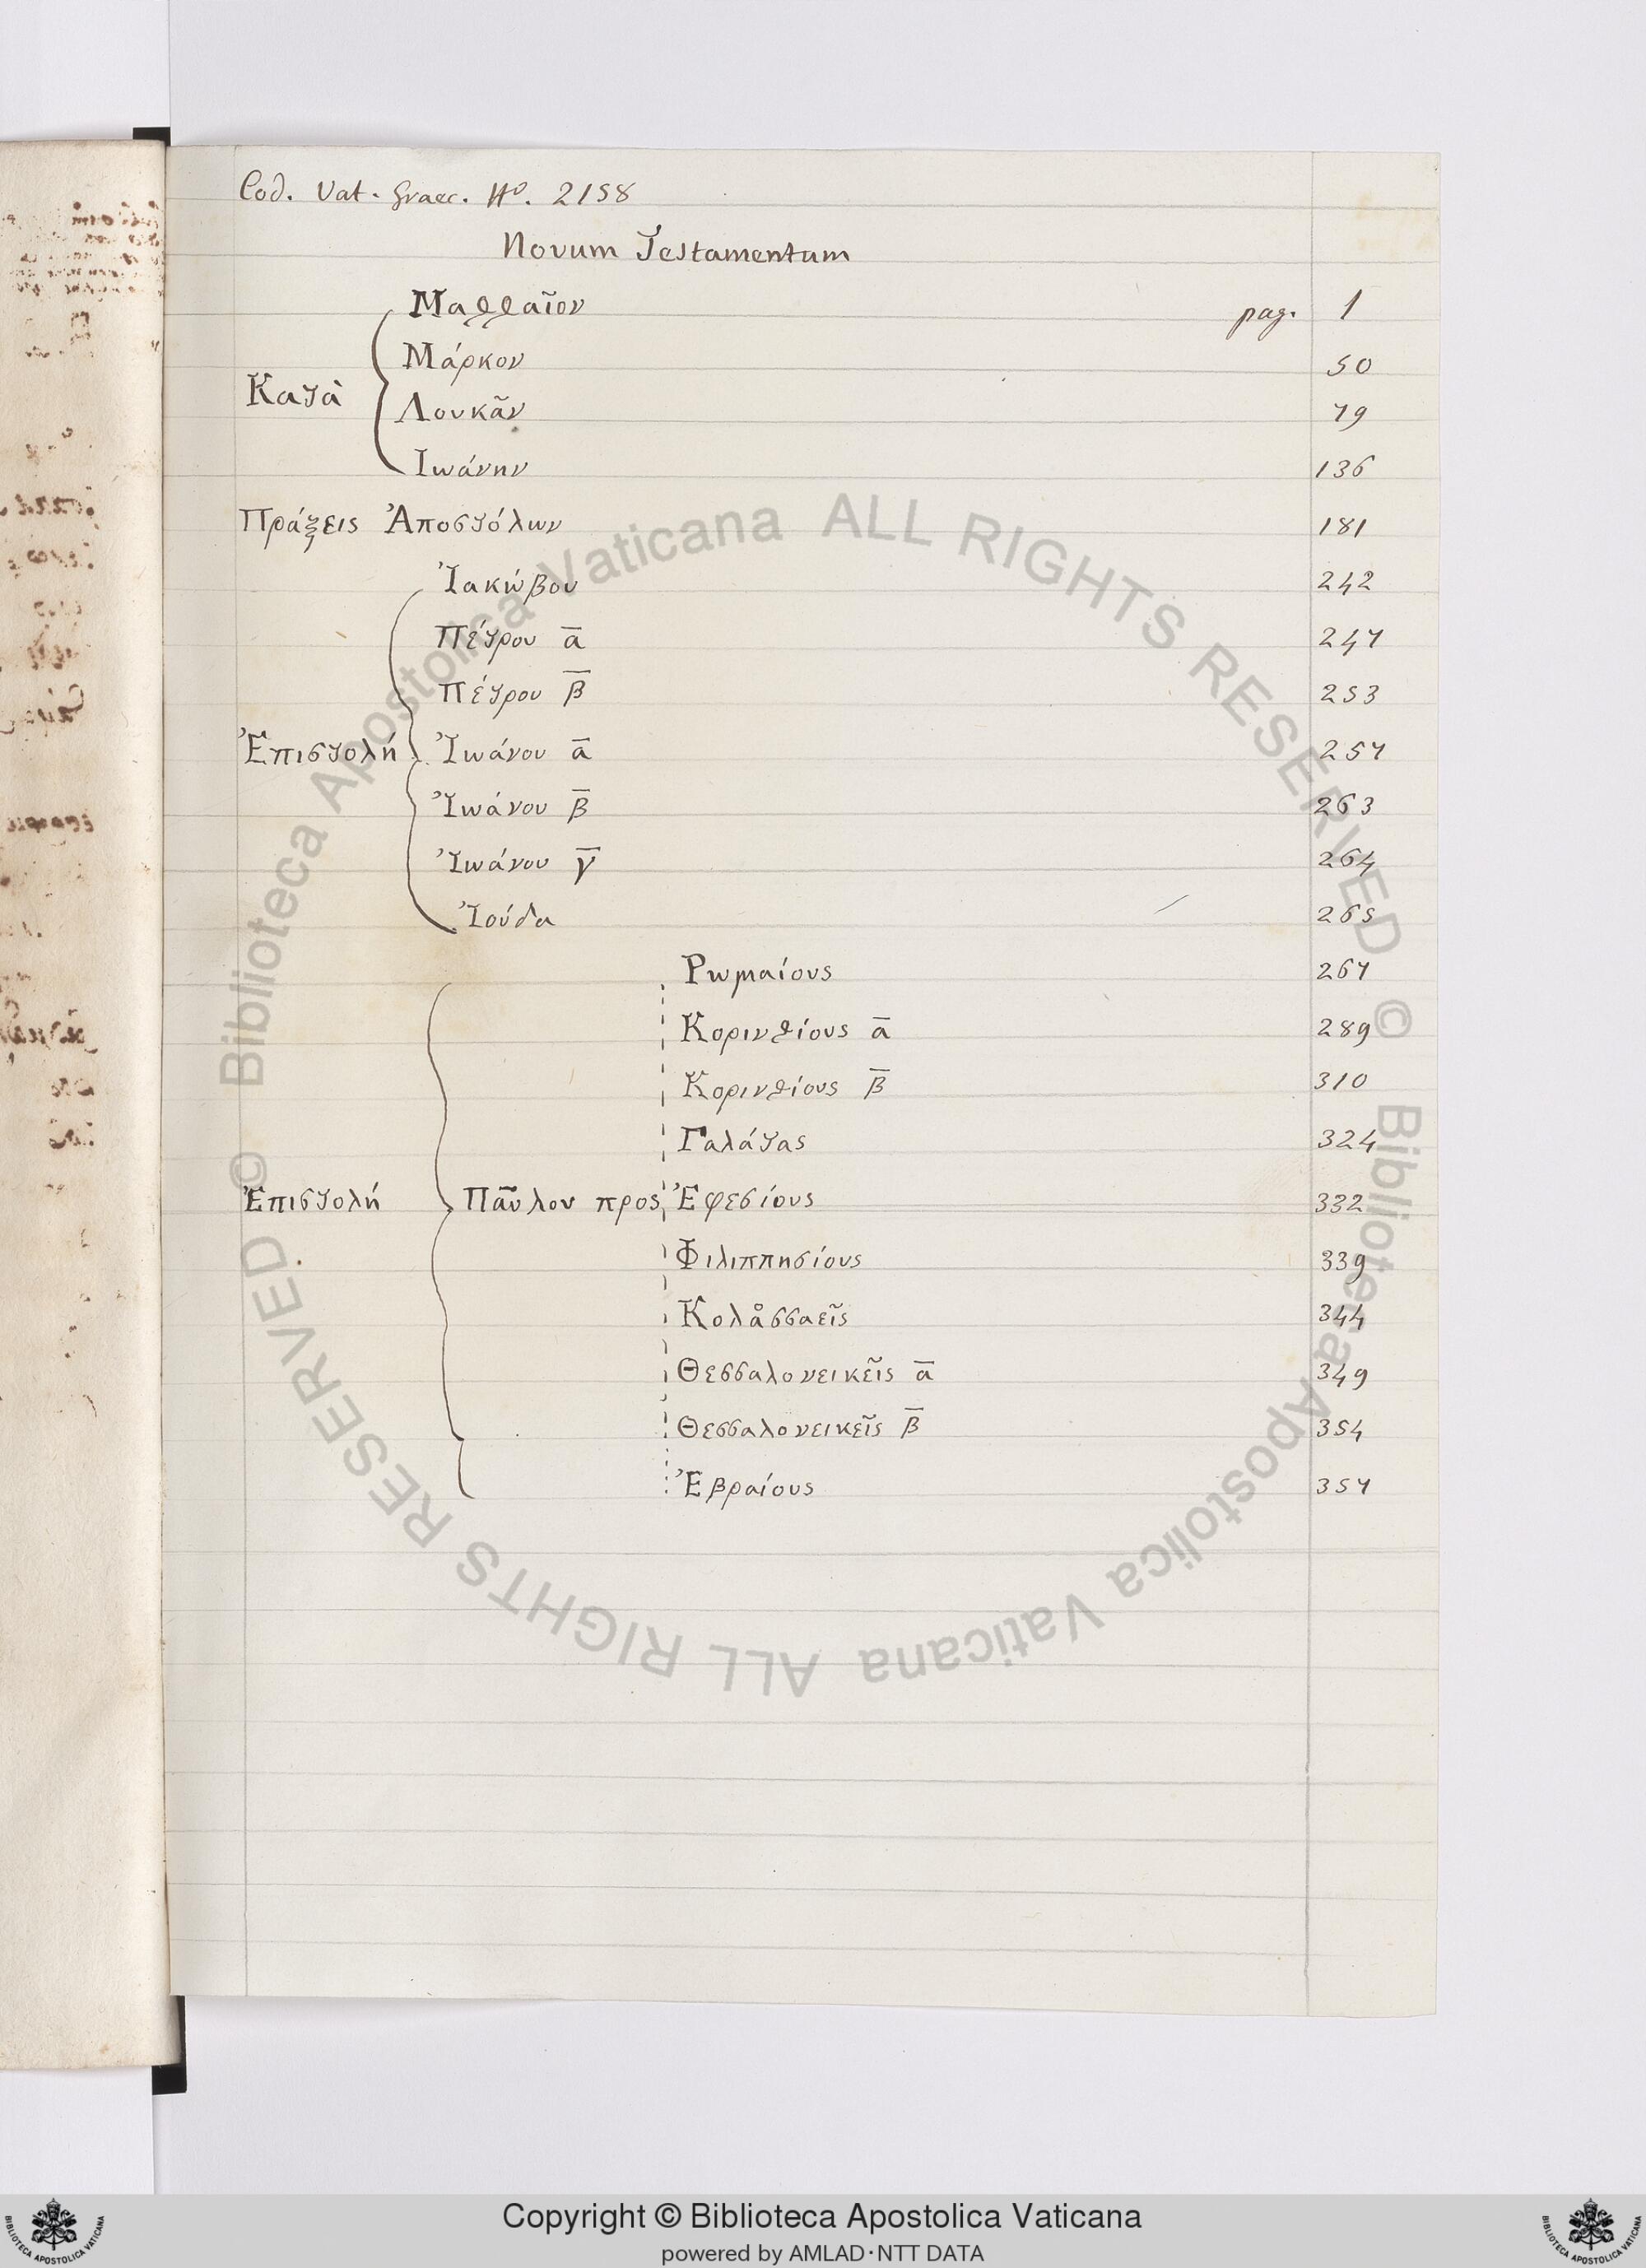 Cod. Vat. Graec. Nº. 2158
Novum Testamentum
Μαθθαῖον pag. 1
Μάρκον 50
Κατὰ
Λουκᾶν 79
Ἰωάνην 136
Πράξεις Ἀποστόλων 181
Ἰακώβου 242
Πέτρου α̅ 247
Πέτρου β̅ 253
Ἐπιστολή Ἰωάνου α̅ 257
Ἰωάνου β̅ 263
Ἰωάνου γ̅ 264
Ἰούδα 265
Ρωμαίους 267
Κορινθίους α̅ 289
Κορινθίους β̅ 310
Γαλάτας 324
Ἐπιστολή Παῦλου προς Ἐφεσίους 332
Φιλιππησίους 339
Κολασσαεῖς 344
Θεσσαλονεικεῖς α̅ 349
Θεσσαλονεικεῖς β̅ 354
Ἐβραίους 357
© Biblioteca Apostolica Vaticana ALL RIGHTS RESERVED
© Biblioteca Apostolica Vaticana ALL RIGHTS RESERVED
Copyright © Biblioteca Apostolica Vaticana
powered by AMLAD·NTT DATA
BIBLIOTECA APOSTOLICA VATICANA
BIBLIOTECA APOSTOLICA VATICANA